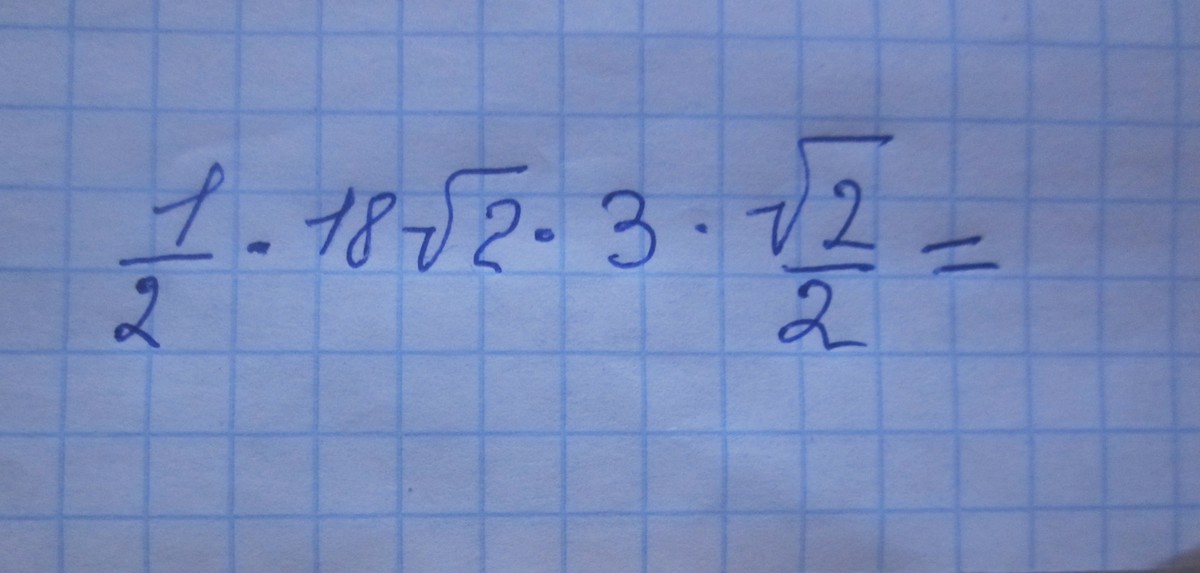 1/2 · 18√2 · 3 · √2/2 =